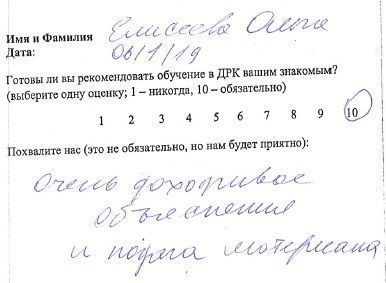 Имя и Фамилия Елисеева Ольга
Дата: 06/11/19
Готовы ли вы рекомендовать обучение в ДРК вашим знакомым?
(выберите одну оценку; 1 – никогда, 10 – обязательно)
1 2 3 4 5 6 7 8 9 10
Похвалите нас (это не обязательно, но нам будет приятно):
Очень доходчивое
объяснение
и подача материала